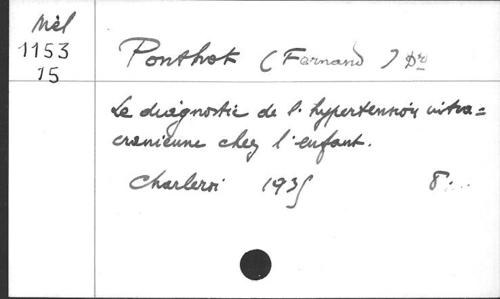 Mél
1153
15
Ponthot (Fernand) Dr
Le diagnostic de l'hypertension intra=
cranienne chez l'enfant.
Charleroi 1935 8:...